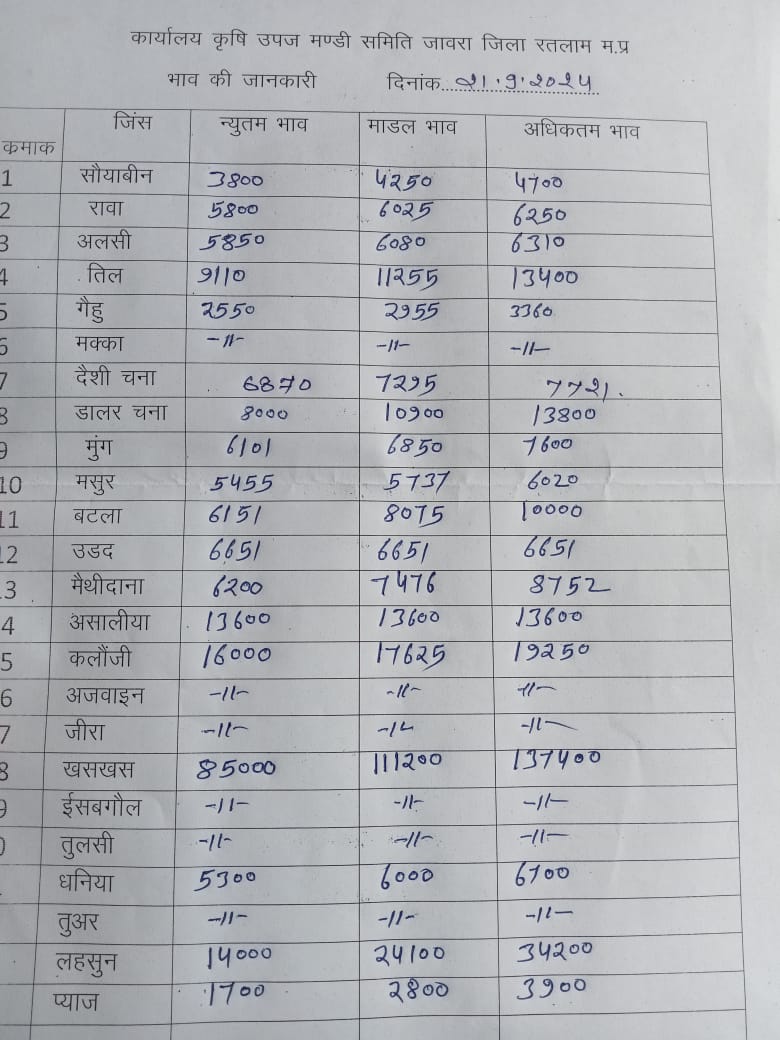 कार्यालय कृषि उपज मण्डी समिति जावरा जिला रतलाम म.प्र
भाव की जानकारी दिनांक 21.9.2024
कमाक जिंस न्युतम भाव माडल भाव अधिकतम भाव
1 सौयाबीन 3800 4250 4700
2 रावा 5800 6025 6250
3 अलसी 5850 6080 6310
4 तिल 9110 11255 13400
5 गैहु 2550 2955 3360
6 मक्का -11- -11- -11-
7 दैशी चना 6870 7295 7721.
8 डालर चना 8000 10900 13800
9 मुंग 6101 6850 7600
10 मसुर 5455 5737 6020
11 बटला 6151 8075 10000
12 उडद 6651 6651 6651
3 मैथीदाना 6200 7476 8752
4 असालीया 13600 13600 13600
5 कलौंजी 16000 17625 19250
6 अजवाइन -11- -11- -11-
7 जीरा -11- -11- -11-
8 खसखस 85000 111200 137400
9 ईसबगौल -11- -11- -11-
0 तुलसी -11- -11- -11-
धनिया 5300 6000 6700
तुअर -11- -11- -11-
लहसुन 14000 24100 34200
प्याज 1700 2800 3900